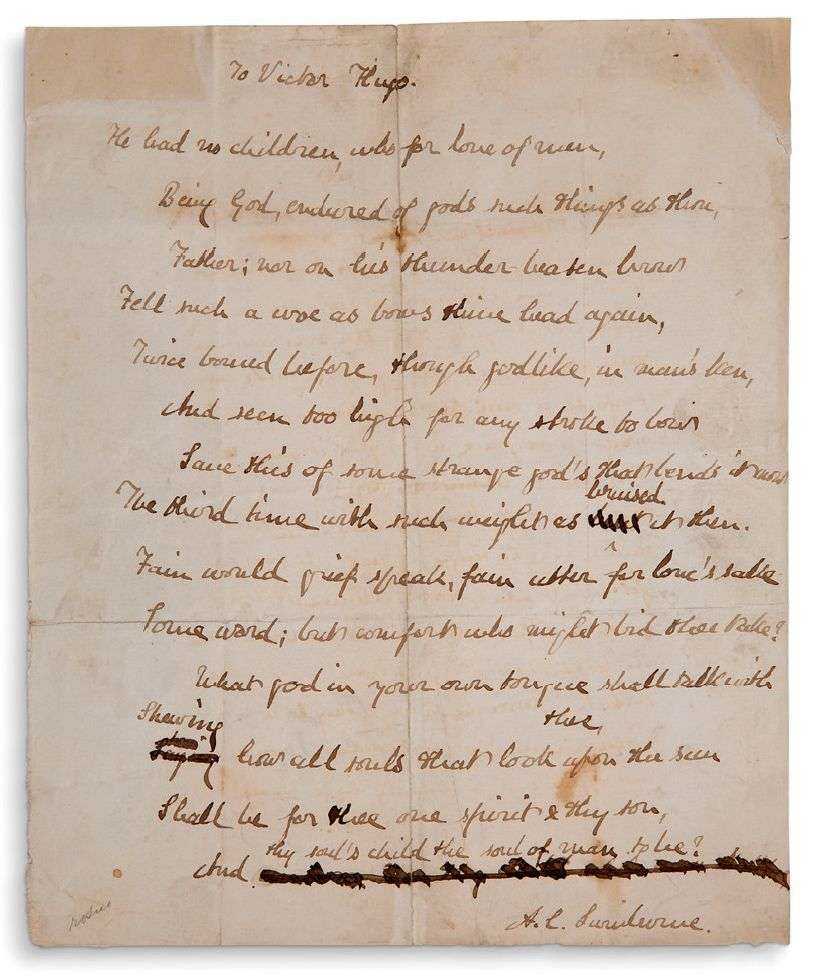 To Victor Hugo.
He had no children, who for love of men,
Being God, endured of gods such things as thou,
Father; nor on his thunder-beaten brow
Fell such a woe as bows thine head again,
Twice bowed before, though godlike, in man's ken,
And seen too high for any stroke to bow
Save this of some strange god's that bends it now
The third time with such weight as bruised it then.
Fain would grief speak, fain utter for love's sake
Some word; but comfort who might bid thee take?
What god in your own tongue shall talk with thee,
Shewing how all souls that look upon the sun
Shall be for thee one spirit & thy son,
And thy soul's child the soul of man to be?
A. C. Swinburne.